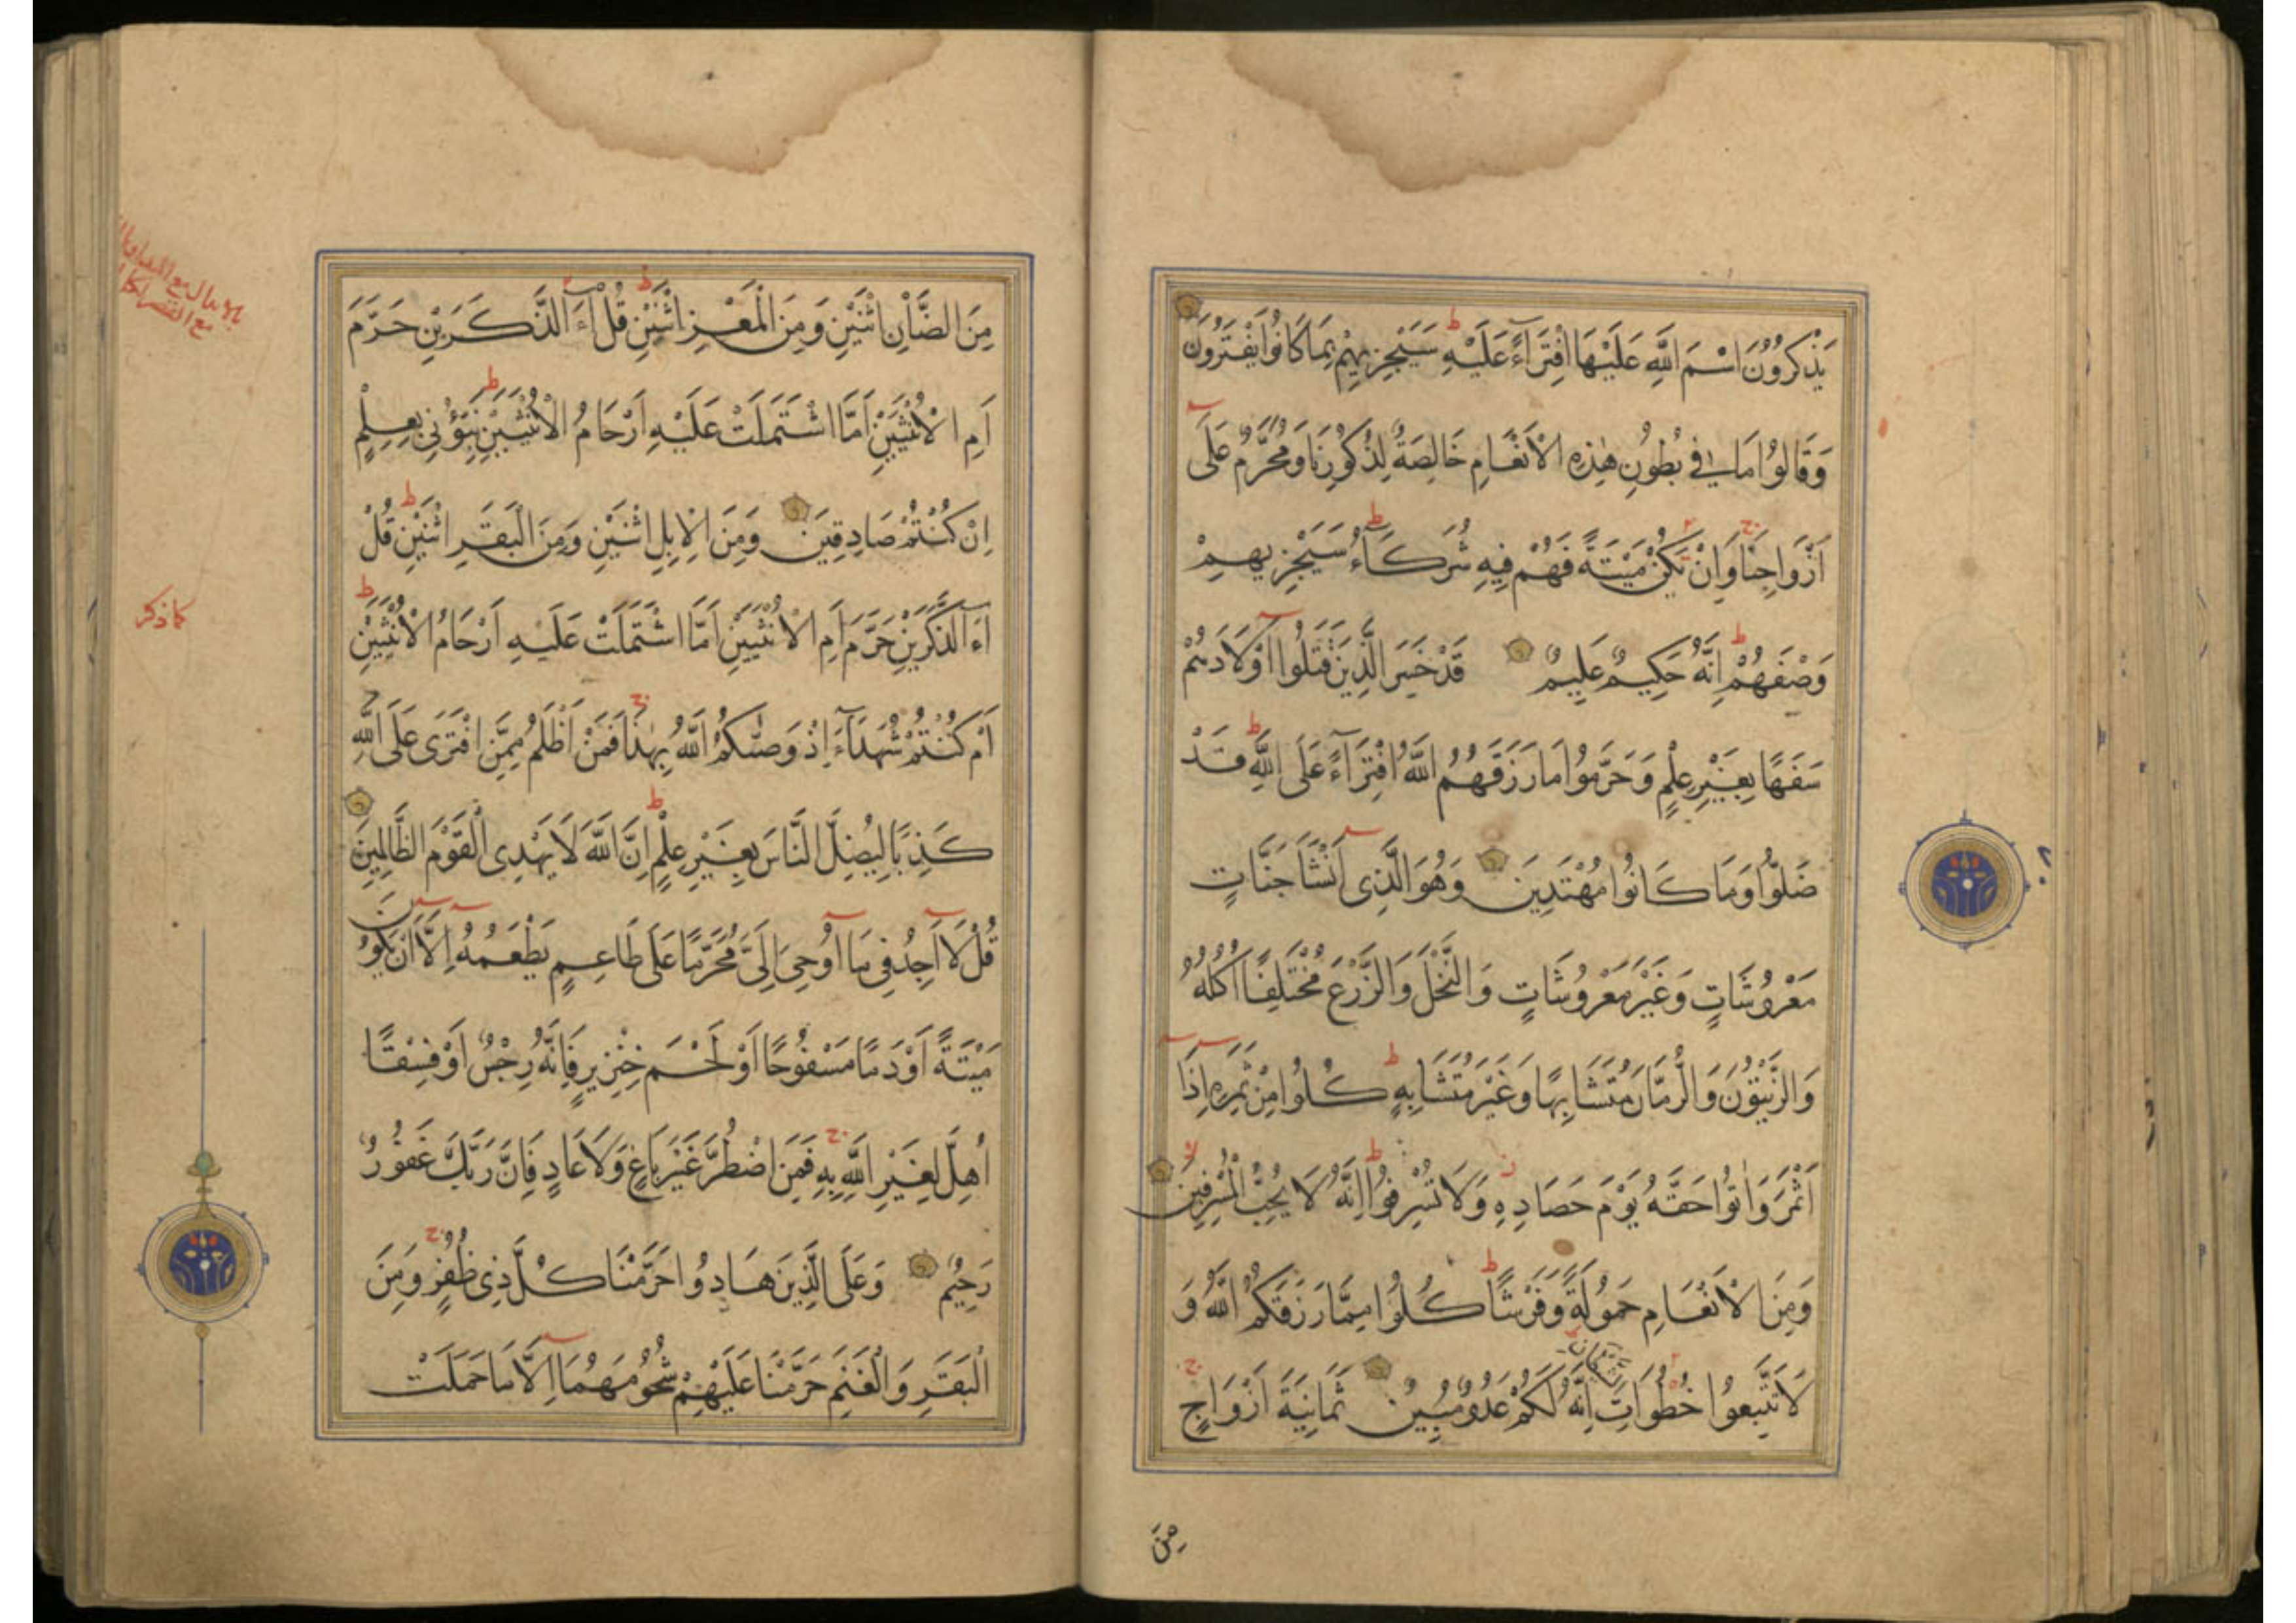 يَذْكُرُونَ اسْمَ اللَّهِ عَلَيْهَا افْتِرَآءً عَلَيْهِ سَيَجْزِيهِمْ بِمَا كَانُوا يَفْتَرُونَ
وَقَالُوا مَا فِي بُطُونِ هٰذِهِ الْاَنْعَامِ خَالِصَةٌ لِذُكُورِنَا وَمُحَرَّمٌ عَلٰٓى
اَزْوَاجِنَا وَاِنْ يَكُنْ مَيْتَةً فَهُمْ فِيهِ شُرَكَآءُ سَيَجْزِيهِمْ
وَصْفَهُمْ اِنَّهُ حَكِيمٌ عَلِيمٌ قَدْ خَسِرَ الَّذِينَ قَتَلُوا اَوْلَادَهُمْ
سَفَهًا بِغَيْرِ عِلْمٍ وَحَرَّمُوا مَا رَزَقَهُمُ اللَّهُ افْتِرَآءً عَلَى اللَّهِ قَدْ
ضَلُّوا وَمَا كَانُوا مُهْتَدِينَ وَهُوَ الَّذِى اَنْشَاَ جَنَّاتٍ
مَعْرُوشَاتٍ وَغَيْرَ مَعْرُوشَاتٍ وَالنَّخْلَ وَالزَّرْعَ مُخْتَلِفًا اُكُلُهُ
وَالزَّيْتُونَ وَالرُّمَّانَ مُتَشَابِهًا وَغَيْرَ مُتَشَابِهٍ كُلُوا مِنْ ثَمَرِهِ اِذَآ
اَثْمَرَ وَاٰتُوا حَقَّهُ يَوْمَ حَصَادِهِ وَلَا تُسْرِفُوا اِنَّهُ لَا يُحِبُّ الْمُسْرِفِينَ
وَمِنَ الْاَنْعَامِ حَمُولَةً وَفَرْشًا كُلُوا مِمَّا رَزَقَكُمُ اللَّهُ وَ
لَا تَتَّبِعُوا خُطُوَاتِ الشَّيْطَانِ اِنَّهُ لَكُمْ عَدُوٌّ مُبِينٌ ثَمَانِيَةَ اَزْوَاجٍ
مِنَ
مِنَ الضَّاْنِ اثْنَيْنِ وَمِنَ الْمَعْزِ اثْنَيْنِ قُلْ ءَآلذَّكَرَيْنِ حَرَّمَ
اَمِ الْاُنْثَيَيْنِ اَمَّا اشْتَمَلَتْ عَلَيْهِ اَرْحَامُ الْاُنْثَيَيْنِ نَبِّؤُنِى بِعِلْمٍ
اِنْ كُنْتُمْ صَادِقِينَ وَمِنَ الْاِبِلِ اثْنَيْنِ وَمِنَ الْبَقَرِ اثْنَيْنِ قُلْ
ءَآلذَّكَرَيْنِ حَرَّمَ اَمِ الْاُنْثَيَيْنِ اَمَّا اشْتَمَلَتْ عَلَيْهِ اَرْحَامُ الْاُنْثَيَيْنِ
اَمْ كُنْتُمْ شُهَدَآءَ اِذْ وَصّٰىكُمُ اللَّهُ بِهٰذَا فَمَنْ اَظْلَمُ مِمَّنِ افْتَرَى عَلَى اللَّهِ
كَذِبًا لِيُضِلَّ النَّاسَ بِغَيْرِ عِلْمٍ اِنَّ اللَّهَ لَا يَهْدِى الْقَوْمَ الظَّالِمِينَ
قُلْ لَآ اَجِدُ فِى مَآ اُوحِىَ اِلَىَّ مُحَرَّمًا عَلَى طَاعِمٍ يَطْعَمُهُ اِلَّآ اَنْ يَكُونَ
مَيْتَةً اَوْ دَمًا مَسْفُوحًا اَوْ لَحْمَ خِنْزِيرٍ فَاِنَّهُ رِجْسٌ اَوْ فِسْقًا
اُهِلَّ لِغَيْرِ اللَّهِ بِهِ فَمَنِ اضْطُرَّ غَيْرَ بَاغٍ وَلَا عَادٍ فَاِنَّ رَبَّكَ غَفُورٌ
رَحِيمٌ وَعَلَى الَّذِينَ هَادُوا حَرَّمْنَا كُلَّ ذِى ظُفُرٍ وَمِنَ
الْبَقَرِ وَالْغَنَمِ حَرَّمْنَا عَلَيْهِمْ شُحُومَهُمَآ اِلَّا مَا حَمَلَتْ
كما ذكر